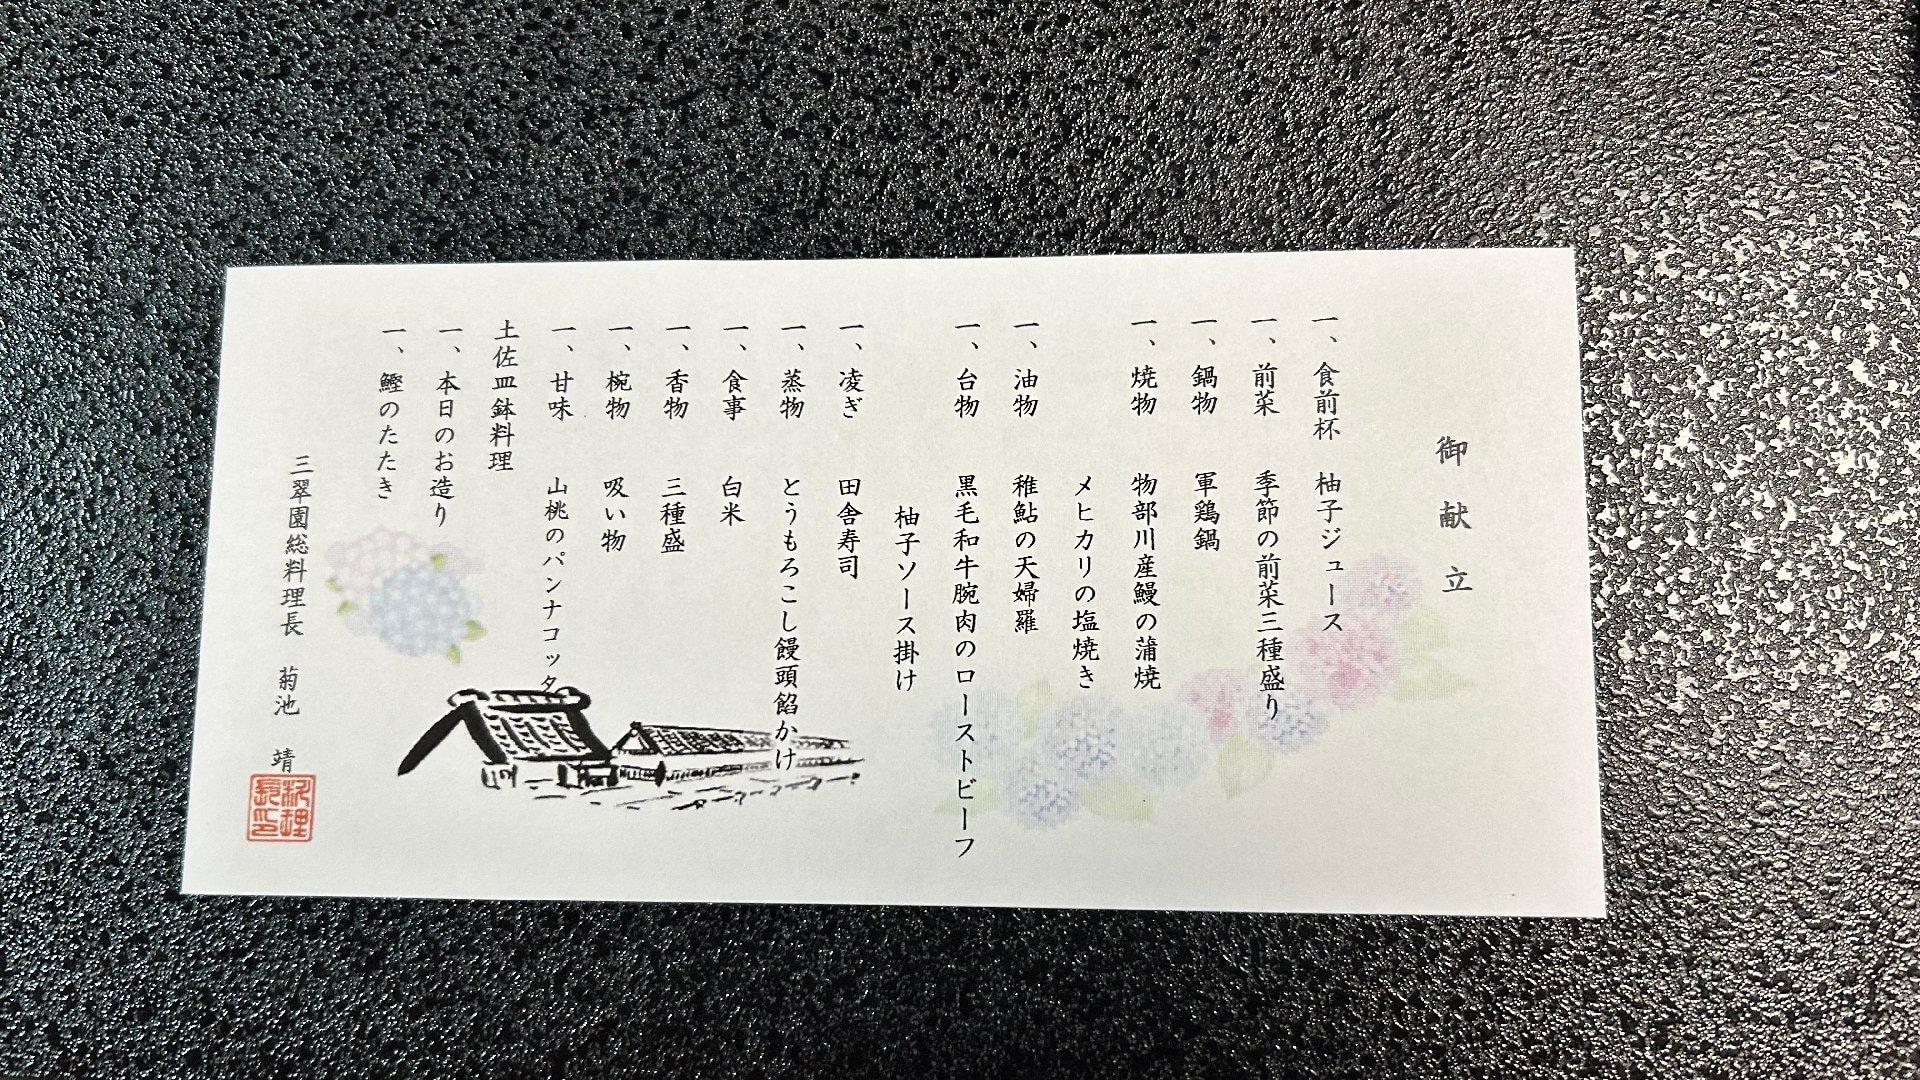 御献立
一、食前杯　柚子ジュース
一、前菜　季節の前菜三種盛り
一、鍋物　軍鶏鍋
一、焼物　物部川産鰻の蒲焼
メヒカリの塩焼き
一、油物　稚鮎の天婦羅
一、台物　黒毛和牛腕肉のローストビーフ
柚子ソース掛け
一、凌ぎ　田舎寿司
一、蒸物　とうもろこし饅頭餡かけ
一、食事　白米
一、香物　三種盛
一、椀物　吸い物
一、甘味　山桃のパンナコッタ
土佐皿鉢料理
一、本日のお造り
一、鰹のたたき
三翠園総料理長　菊池　靖
料理
長印